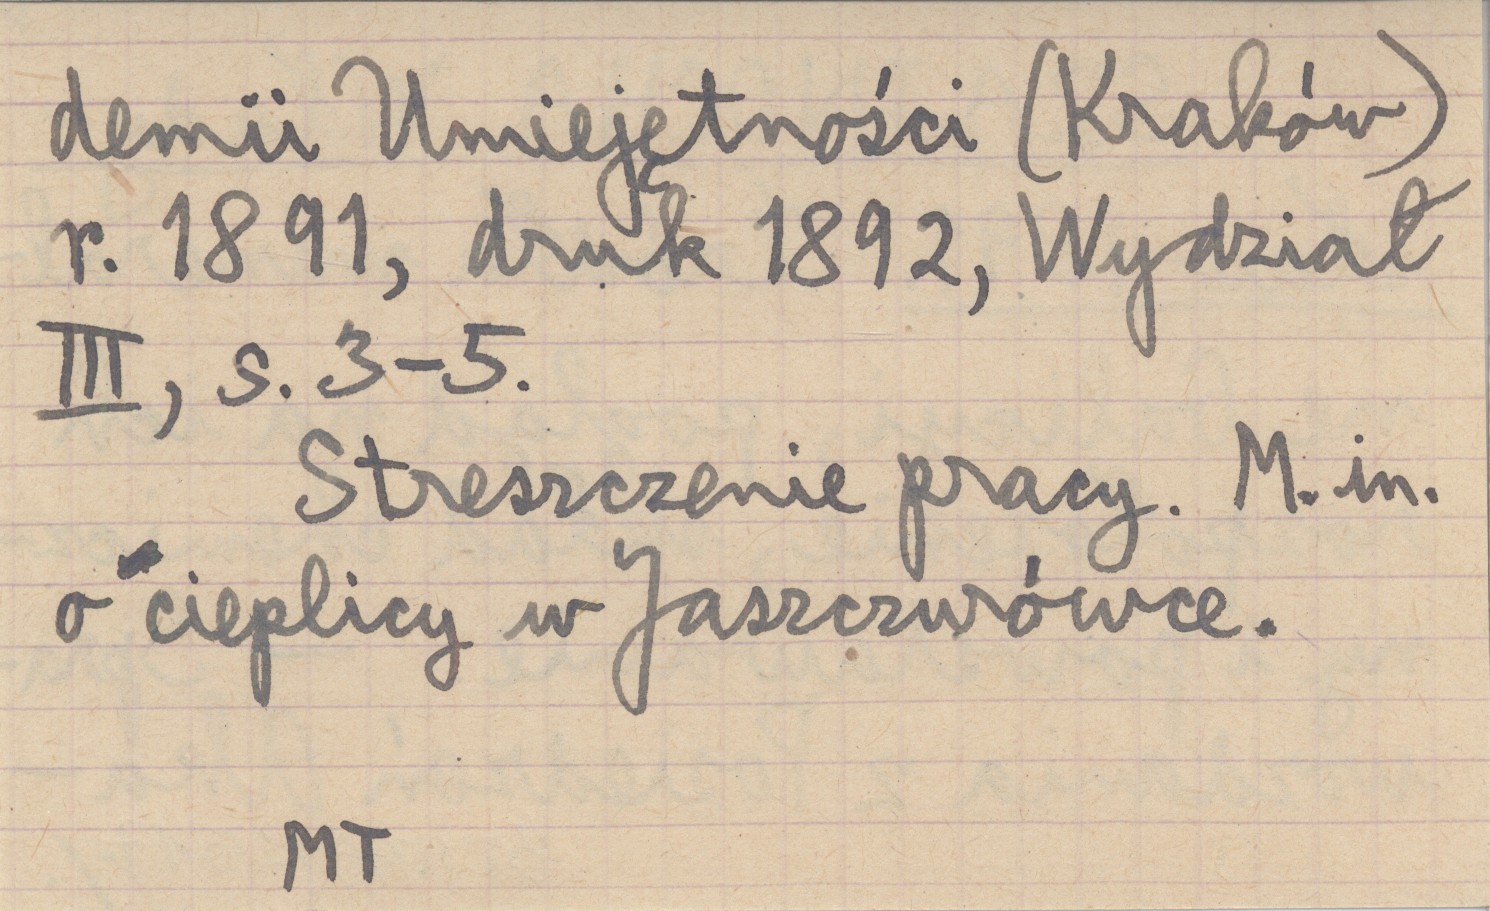 demii Umiejętności (Kraków)
r. 1891, druk 1892, Wydział
III, s. 3-5.
Streszczenie pracy. M. in.
o cieplicy w Jaszczurówce.
MT